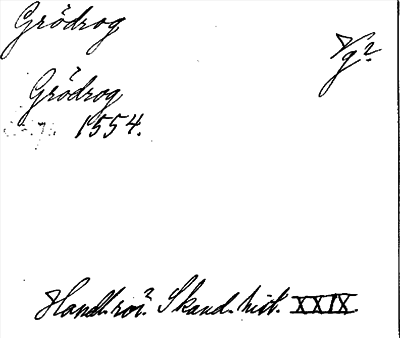 Grödrog
Vg?
Grödrog
1554.
Handl. rör. Skand. hist. XXIX.